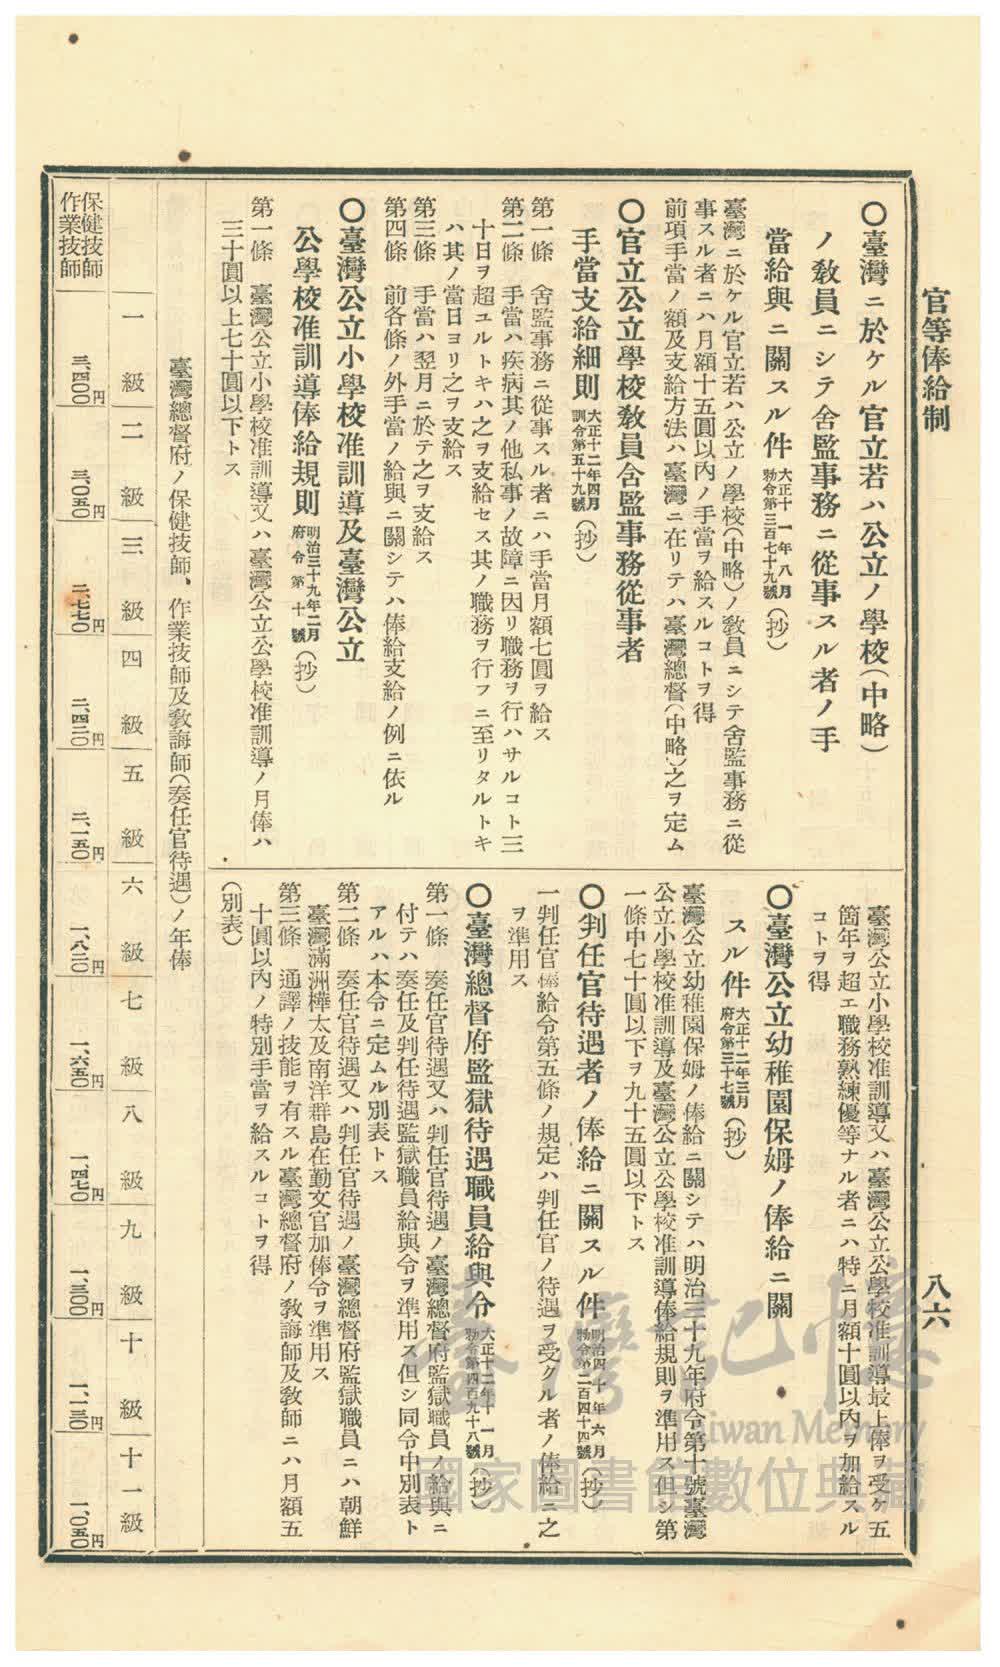 官等俸給制
八六
〇臺灣ニ於ケル官立若ハ公立ノ學校(中略)
ノ敎員ニシテ舍監事務ニ從事スル者ノ手
當給與ニ關スル件 大正十一年八月 勅令第三百七十九號 (抄)
臺灣ニ於ケル官立若ハ公立ノ學校(中略)ノ敎員ニシテ舍監事務ニ從
事スル者ニハ月額十五圓以內ノ手當ヲ給スルコトヲ得
前項手當ノ額及支給方法ハ臺灣ニ在リテハ臺灣總督(中略)之ヲ定ム
〇官立公立學校敎員舍監事務從事者
手當支給細則 大正十二年四月 訓令第五十九號 (抄)
第一條 舍監事務ニ從事スル者ニハ手當月額七圓ヲ給ス
第二條 手當ハ疾病其ノ他私事ノ故障ニ因リ職務ヲ行ハサルコト三
十日ヲ超ユルトキハ之ヲ支給セス其ノ職務ヲ行フニ至リタルトキ
ハ其ノ當日ヨリ之ヲ支給ス
第三條 手當ハ翌月ニ於テ之ヲ支給ス
第四條 前各條ノ外手當ノ給與ニ關シテハ俸給支給ノ例ニ依ル
〇臺灣公立小學校准訓導及臺灣公立
公學校准訓導俸給規則 明治三十九年二月 府令第十號 (抄)
第一條 臺灣公立小學校准訓導又ハ臺灣公立公學校准訓導ノ月俸ハ
三十圓以上七十圓以下トス
臺灣公立小學校准訓導又ハ臺灣公立公學校准訓導最上俸ヲ受ケ五
箇年ヲ超エ職務熟練優等ナル者ニハ特ニ月額十圓以內ヲ加給スル
コトヲ得
〇臺灣公立幼稚園保姆ノ俸給ニ關
スル件 大正十二年三月 府令第三十七號 (抄)
臺灣公立幼稚園保姆ノ俸給ニ關シテハ明治三十九年府令第十號臺灣
公立小學校准訓導及臺灣公立公學校准訓導俸給規則ヲ準用ス但シ第
一條中七十圓以下ヲ九十五圓以下トス
〇判任官待遇者ノ俸給ニ關スル件 明治四十年六月 勅令第二百四十四號 (抄)
一判任官俸給令第五條ノ規定ハ判任官ノ待遇ヲ受クル者ノ俸給ニ之
ヲ準用ス
〇臺灣總督府監獄待遇職員給與令 大正十二年十一月 勅令第四百九十八號 (抄)
第一條 奏任官待遇又ハ判任官待遇ノ臺灣總督府監獄職員ノ給與ニ
付テハ奏任及判任待遇監獄職員給與令ヲ準用ス但シ同令中別表ト
アルハ本令ニ定ムル別表トス
第二條 奏任官待遇又ハ判任官待遇ノ臺灣總督府監獄職員ニハ朝鮮
臺灣滿洲樺太及南洋群島在勤文官加俸令ヲ準用ス
第三條 通譯ノ技能ヲ有スル臺灣總督府ノ敎誨師及敎師ニハ月額五
十圓以內ノ特別手當ヲ給スルコトヲ得
(別表)
臺灣總督府ノ保健技師、作業技師及敎誨師(奏任官待遇)ノ年俸
一級 二級 三級 四級 五級 六級 七級 八級 九級 十級 十一級
保健技師
作業技師
三、四〇〇円 三、〇五〇円 二、七七〇円 二、四二〇円 二、一五〇円 一、八二〇円 一、六五〇円 一、四七〇円 一、三〇〇円 一、一三〇円 一、〇五〇円
臺灣記憶
Taiwan Memory
國家圖書館數位典藏